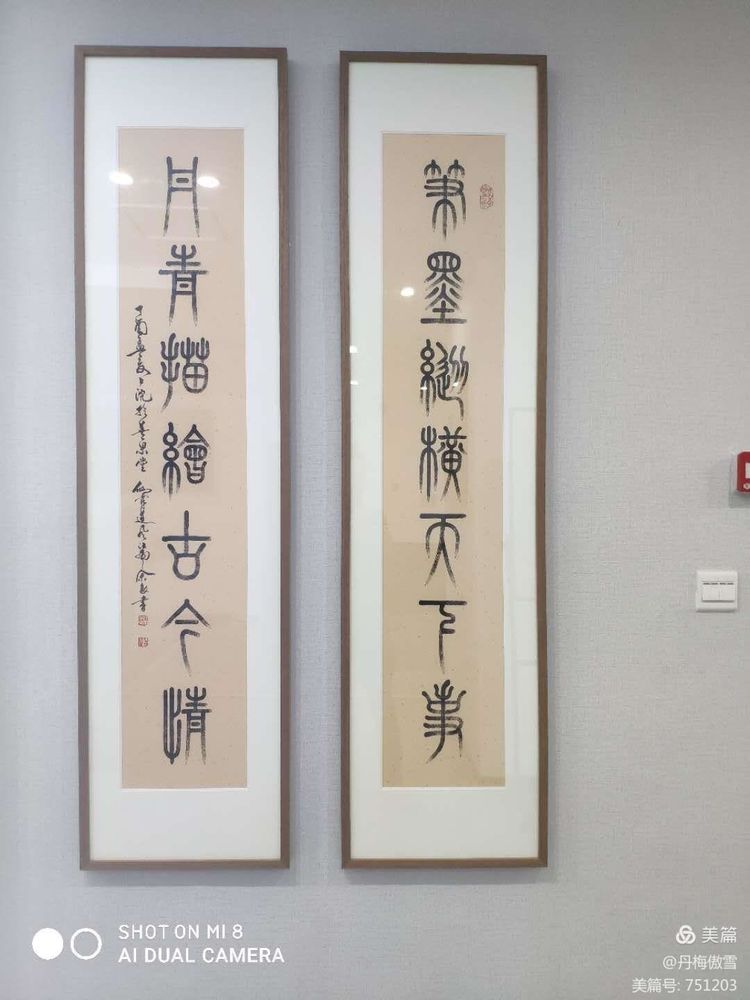 筆墨縱橫天下事
丹青描繪古今情
SHOT ON MI 8
AI DUAL CAMERA
美篇
@丹梅傲雪
美篇号: 751203